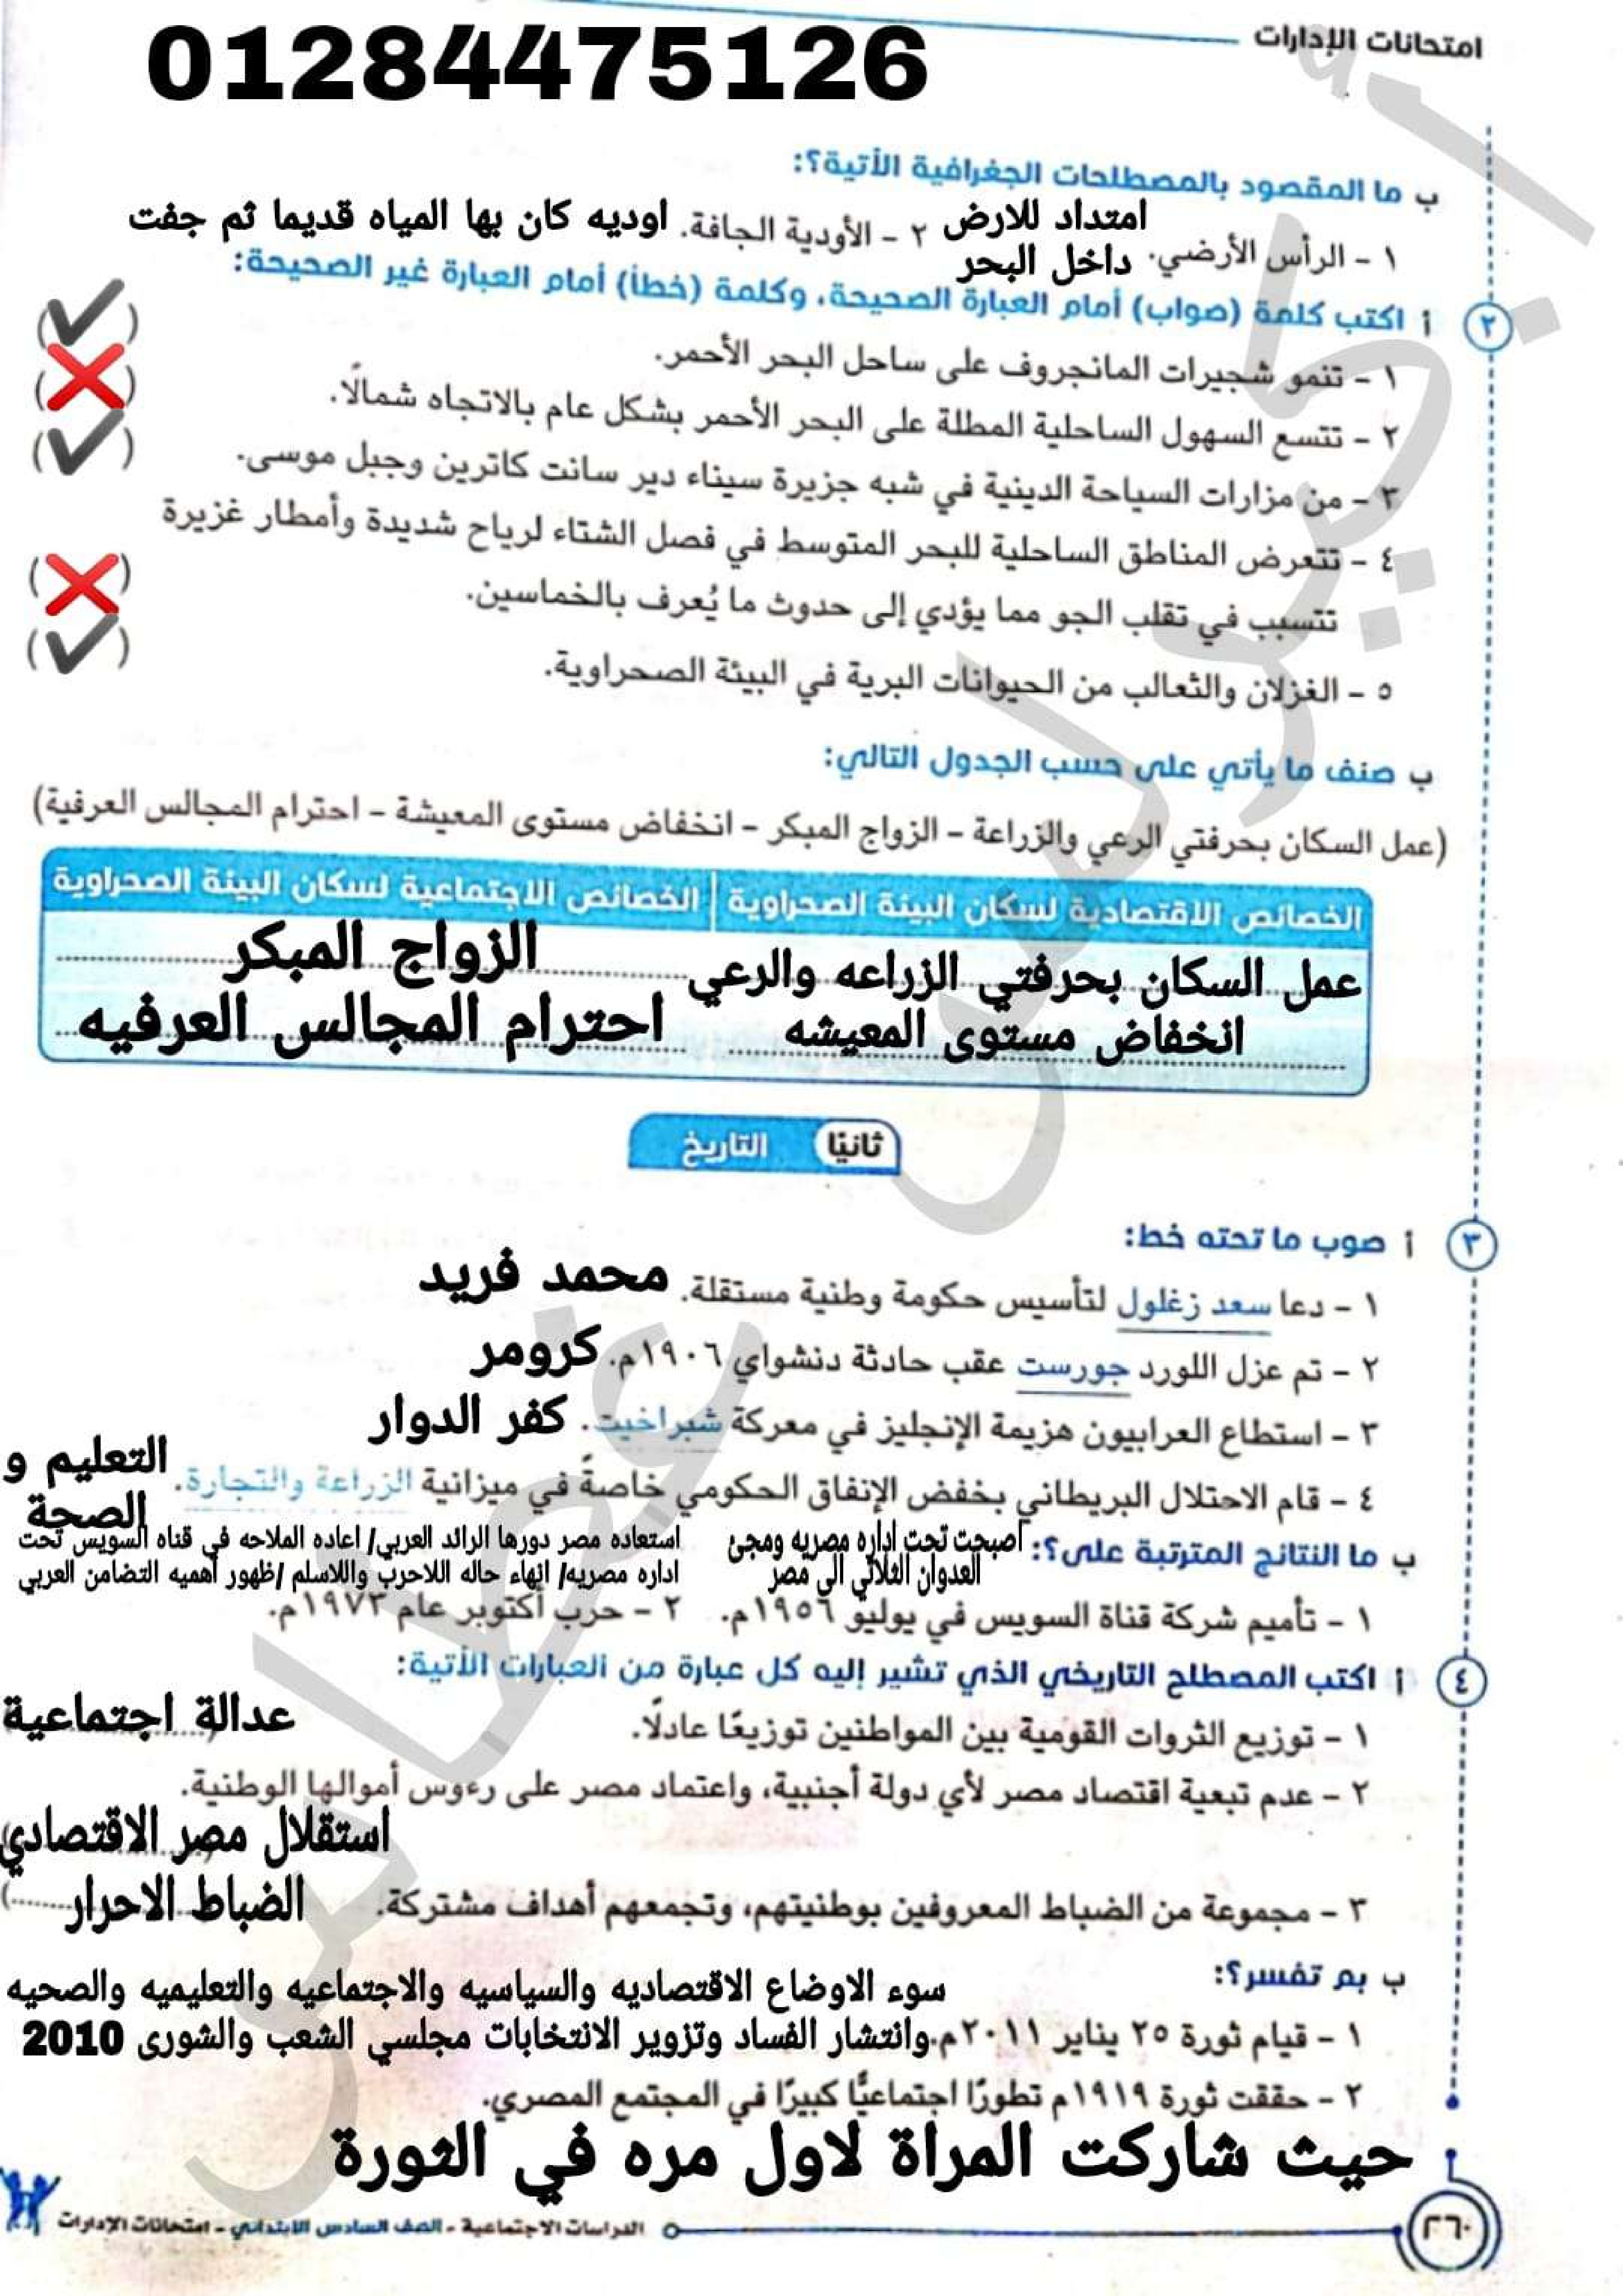 امتحانات الإدارات
01284475126
ب ما المقصود بالمصطلحات الجغرافية الأتية؟:
١ - الرأس الأرضي. امتداد للارض داخل البحر ٢ - الأودية الجافة. اوديه كان بها المياه قديما ثم جفت
٢ أ اكتب كلمة (صواب) أمام العبارة الصحيحة، وكلمة (خطأ) أمام العبارة غير الصحيحة:
١ - تنمو شجيرات المانجروف على ساحل البحر الأحمر. (✔)
٢ - تتسع السهول الساحلية المطلة على البحر الأحمر بشكل عام بالاتجاه شمالًا. (❌)
٣ - من مزارات السياحة الدينية في شبه جزيرة سيناء دير سانت كاترين وجبل موسى. (✔)
٤ - تتعرض المناطق الساحلية للبحر المتوسط في فصل الشتاء لرياح شديدة وأمطار غزيرة
تتسبب في تقلب الجو مما يؤدي إلى حدوث ما يُعرف بالخماسين. (❌)
٥ - الغزلان والثعالب من الحيوانات البرية في البيئة الصحراوية. (✔)
ب صنف ما يأتي على حسب الجدول التالي:
(عمل السكان بحرفتي الرعي والزراعة - الزواج المبكر - انخفاض مستوى المعيشة - احترام المجالس العرفية)
الخصائص الاقتصادية لسكان البيئة الصحراوية الخصائص الاجتماعية لسكان البيئة الصحراوية
عمل السكان بحرفتي الزراعه والرعي الزواج المبكر
انخفاض مستوى المعيشه احترام المجالس العرفيه
ثانيًا التاريخ
٣ أ صوب ما تحته خط:
١ - دعا سعد زغلول لتأسيس حكومة وطنية مستقلة. محمد فريد
٢ - تم عزل اللورد جورست عقب حادثة دنشواي ١٩٠٦م. كرومر
٣ - استطاع العرابيون هزيمة الإنجليز في معركة شبراخيت. كفر الدوار
٤ - قام الاحتلال البريطاني بخفض الإنفاق الحكومي خاصةً في ميزانية الزراعة والتجارة. التعليم و الصحة
ب ما النتائج المترتبة على؟:
اصبحت تحت اداره مصريه ومجئ
العدوان الثلاثي الى مصر
استعاده مصر دورها الرائد العربي/ اعاده الملاحه في قناه السويس تحت
اداره مصريه/ انهاء حاله اللاحرب واللاسلم /ظهور أهميه التضامن العربي
١ - تأميم شركة قناة السويس في يوليو ١٩٥٦م. ٢ - حرب أكتوبر عام ١٩٧٣م.
٤ أ اكتب المصطلح التاريخي الذي تشير إليه كل عبارة من العبارات الأتية:
١ - توزيع الثروات القومية بين المواطنين توزيعًا عادلًا. عدالة اجتماعية
٢ - عدم تبعية اقتصاد مصر لأي دولة أجنبية، واعتماد مصر على رءوس أموالها الوطنية.
استقلال مصر الاقتصادي
٣ - مجموعة من الضباط المعروفين بوطنيتهم، وتجمعهم أهداف مشتركة. الضباط الاحرار
ب بم تفسر؟:
سوء الاوضاع الاقتصاديه والسياسيه والاجتماعيه والتعليميه والصحيه
١ - قيام ثورة ٢٥ يناير ٢٠١١م. وانتشار الفساد وتزوير الانتخابات مجلسي الشعب والشورى 2010
٢ - حققت ثورة ١٩١٩م تطورًا اجتماعيًّا كبيرًا في المجتمع المصري.
حيث شاركت المراة لاول مره في الثورة
٢٦٠ الدراسات الاجتماعية - الصف السادس الابتدائي - امتحانات الإدارات